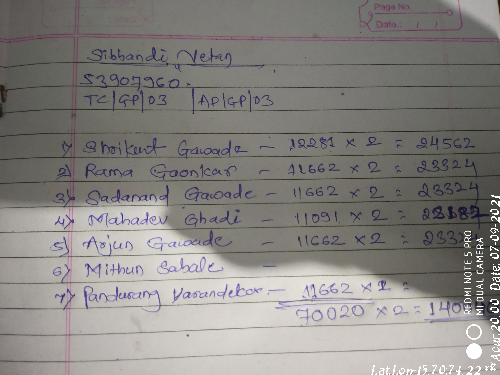 Page No.
Date.: / /
Sibbandi Vetan
53907960.
TC/GP/03 /AP/GP/03
1) Shrikant Gawade - 12281 x 2 = 24562
2) Rama Gaonkar - 11662 x 2 = 23324
3) Sadanand Gawade - 11662 x 2 = 23324
4) Mahadev Ghadi - 11091 x 2 =
5) Arjun Gawade - 11662 x 2 = 2332
6) Mithun Sabale -
7) Pandurang Varandekar - 11662 x 2 =
70020 x 2 = 140
REDMI NOTE 5 PRO
MI DUAL CAMERA
Date, 07-09-2021